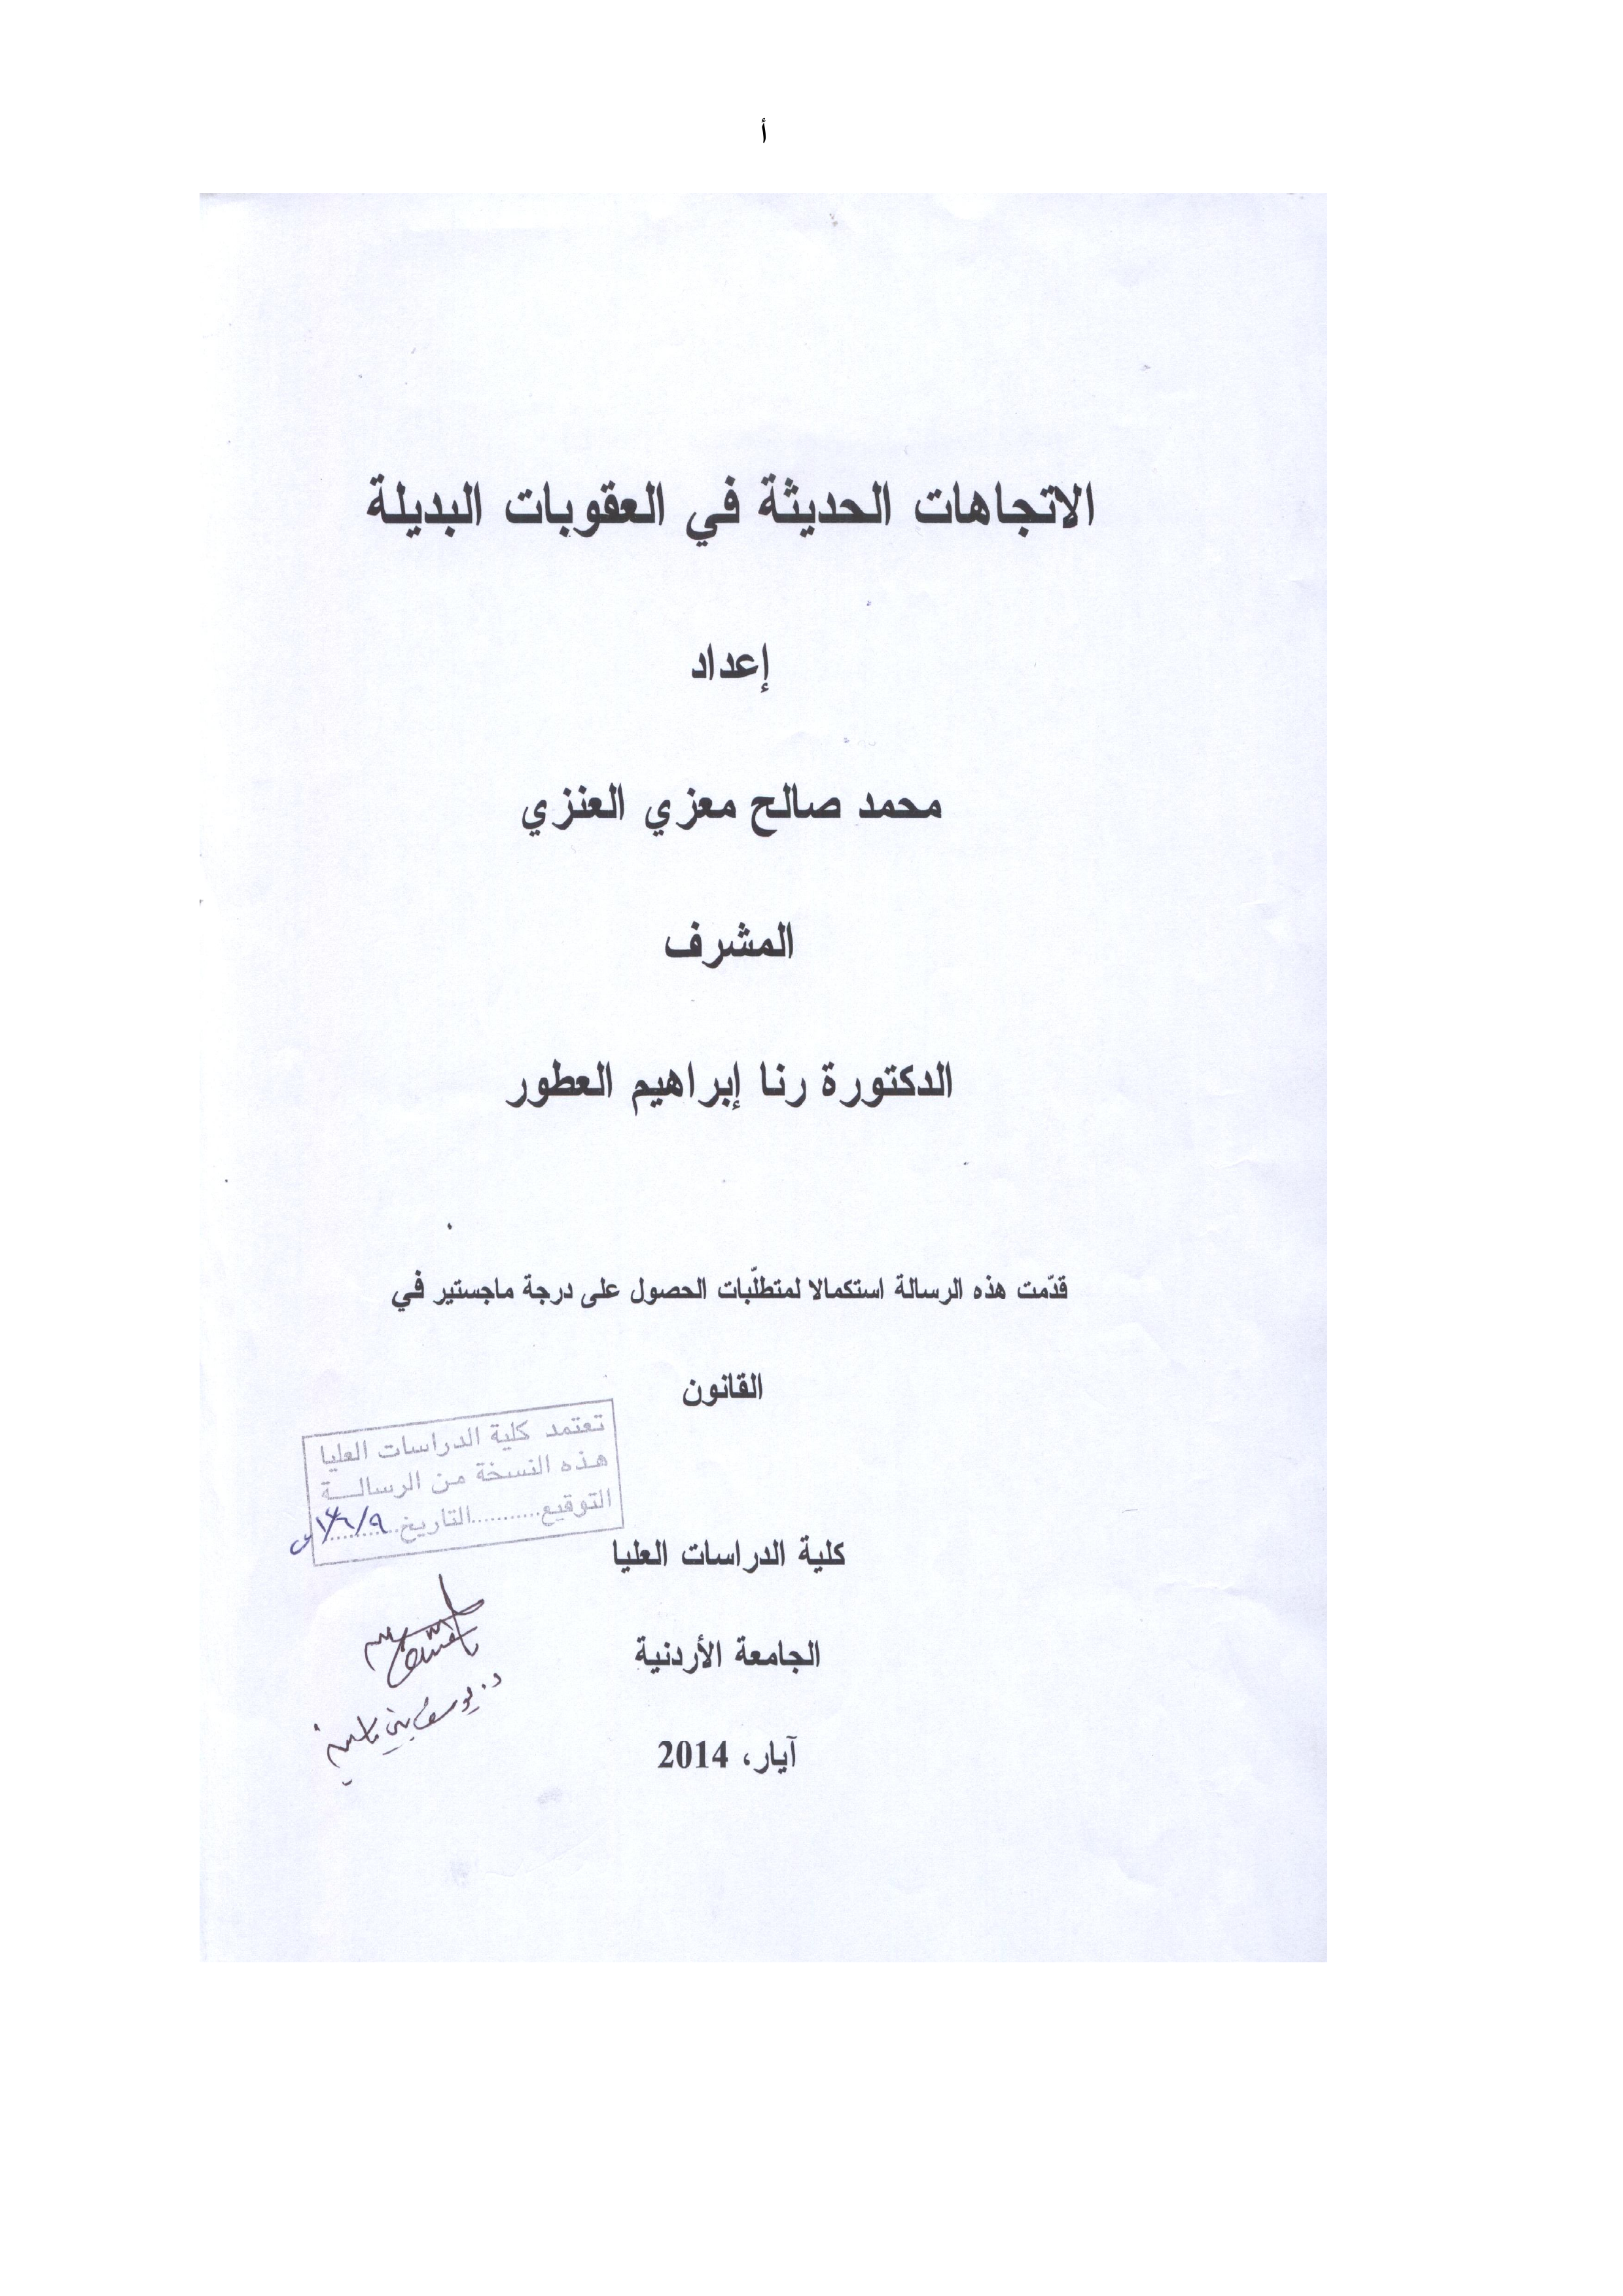 أ
الاتجاهات الحديثة في العقوبات البديلة
إعداد
محمد صالح معزي العنزي
المشرف
الدكتورة رنا إبراهيم العطور
قدّمت هذه الرسالة استكمالا لمتطلّبات الحصول على درجة ماجستير في
القانون
تعتمد كلية الدراسات العليا
هذه النسخة من الرسالــة
التوقيع...........التاريخ...........
كلية الدراسات العليا
الجامعة الأردنية
د. يوسف بني ياسين
آيار، 2014